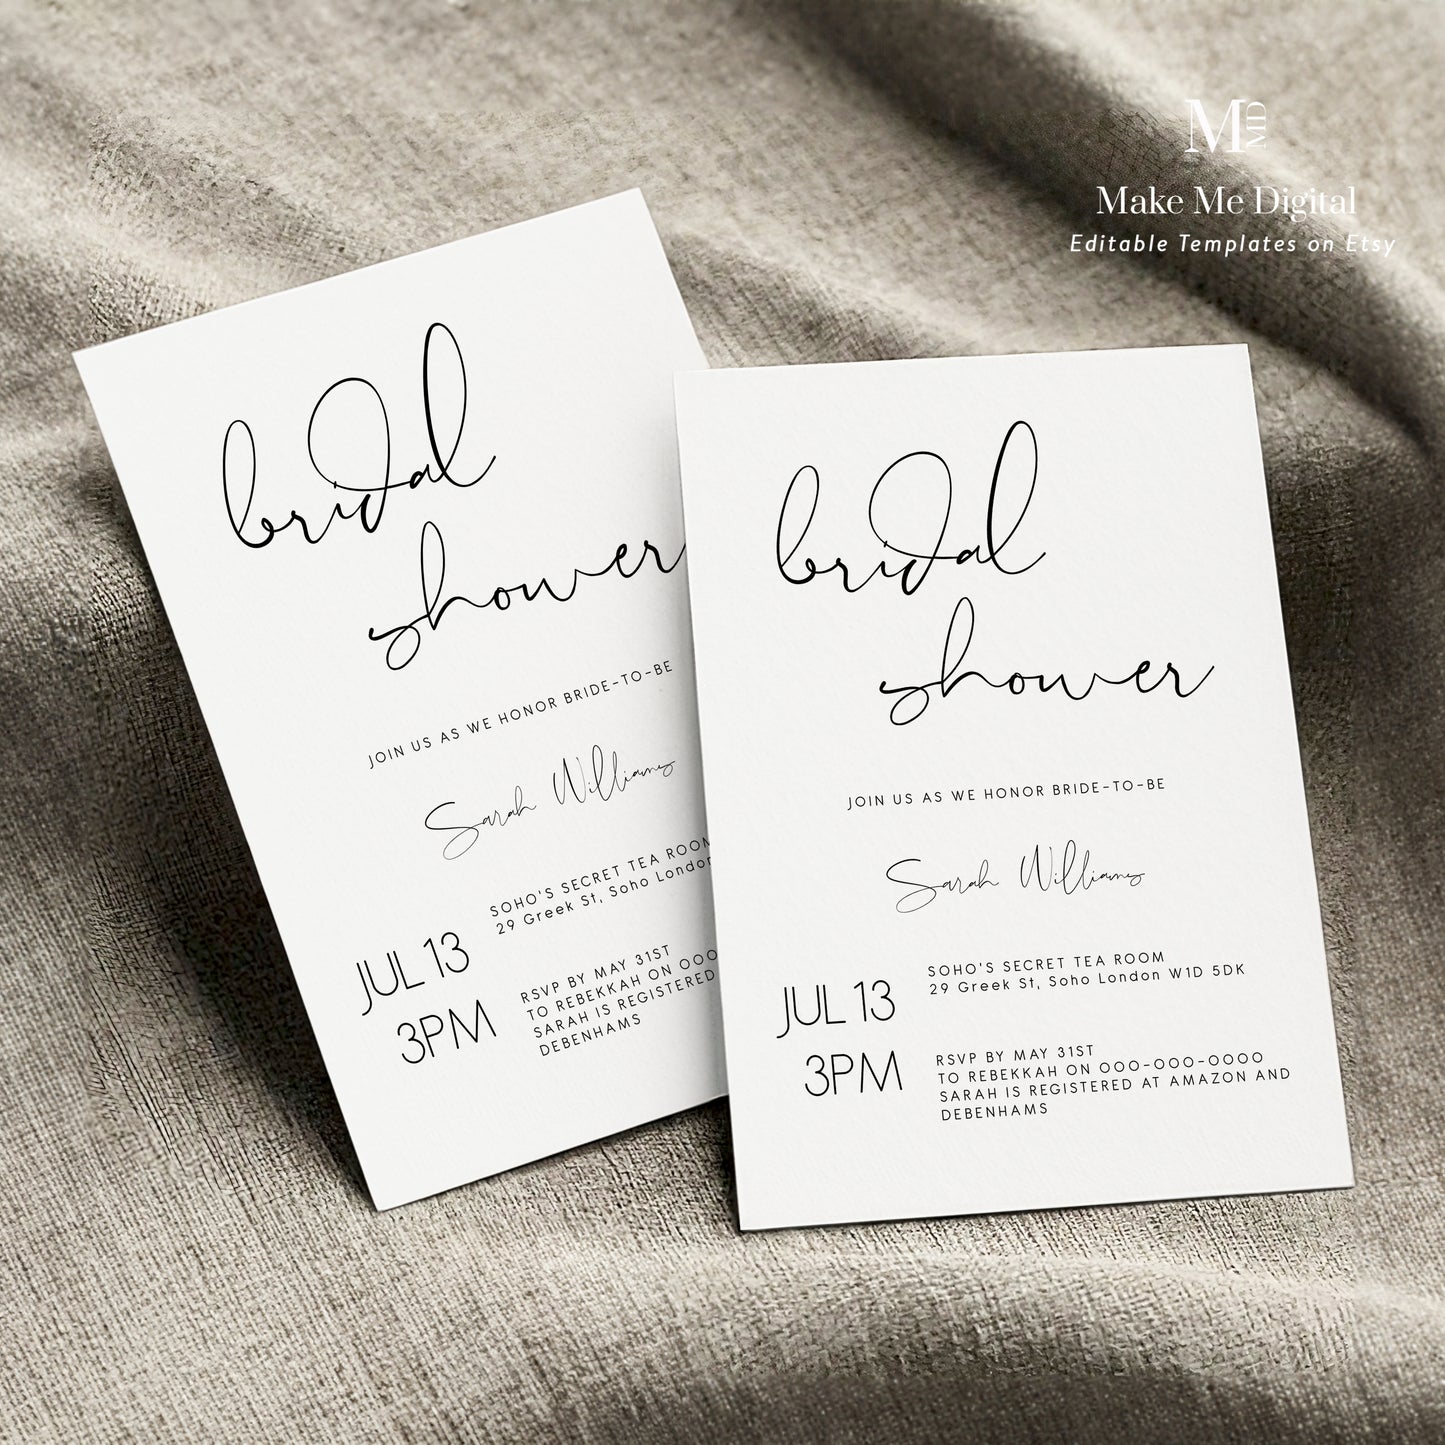 M MD
Make Me Digital
Editable Templates on Etsy
bridal
shower
JOIN US AS WE HONOR BRIDE-TO-BE
Sarah Williams
SOHO'S SECRET TEA ROOM
29 Greek St, Soho London
JUL 13
3PM
RSVP BY MAY 31ST
TO REBEKKAH ON OOO
SARAH IS REGISTERED
DEBENHAMS
bridal
shower
JOIN US AS WE HONOR BRIDE-TO-BE
Sarah Williams
SOHO'S SECRET TEA ROOM
29 Greek St, Soho London W1D 5DK
JUL 13
3PM
RSVP BY MAY 31ST
TO REBEKKAH ON OOO-OOO-OOOO
SARAH IS REGISTERED AT AMAZON AND
DEBENHAMS